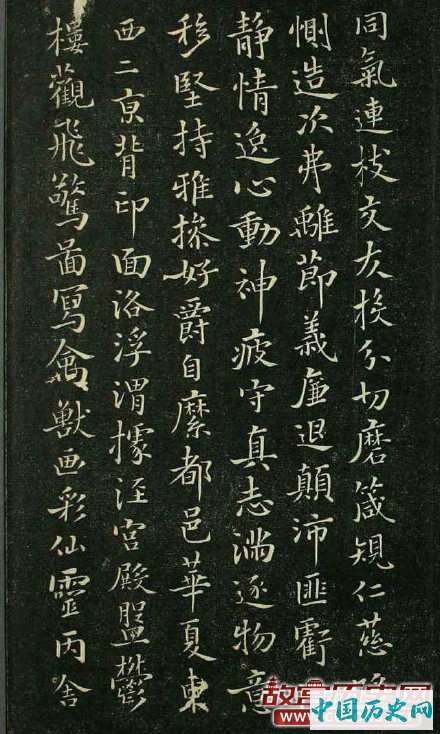 同氣連枝交友投分切磨箴規仁慈隱
惻造次弗離節義廉退顛沛匪虧
靜情逸心動神疲守真志滿逐物意
移堅持雅操好爵自縻都邑華夏東
西二亰背邙面洛浮渭據涇宮殿盤鬱
樓觀飛驚啚寫禽獸画彩仙靈丙舍
中国历史网